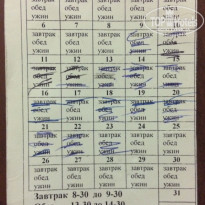 ужин ужин ужин ужин ужин
6 7 8 9 10
завтрак завтрак завтрак завтрак завтрак
обед обед обед обед обед
ужин ужин ужин ужин ужин
11 12 13 14 15
завтрак завтрак завтрак завтрак завтрак
обед обед обед обед обед
ужин ужин ужин ужин ужин
16 17 18 19 20
завтрак завтрак завтрак завтрак завтрак
обед обед обед обед обед
ужин ужин ужин ужин ужин
21 22 23 24 25
завтрак завтрак завтрак завтрак завтрак
обед обед обед обед обед
ужин ужин ужин ужин ужин
26 27 28 29 30
завтрак завтрак завтрак завтрак завтрак
обед обед обед обед обед
ужин ужин ужин ужин ужин
Завтрак 8-30 до 9-30 31